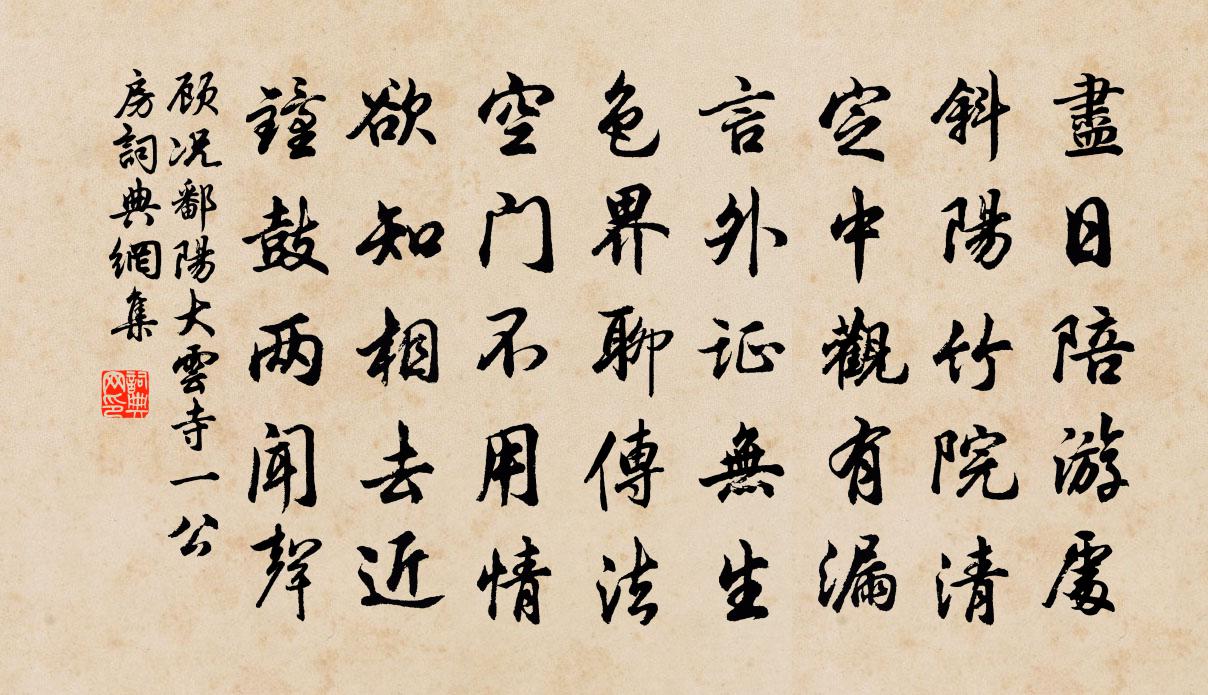 盡日陪游處
斜陽竹院清
定中觀有漏
言外证無生
色界聊傳法
空门不用情
欲知相去近
鐘鼓两闻聲
顾况鄱陽大雲寺一公
房詞典網集
詞典
网印